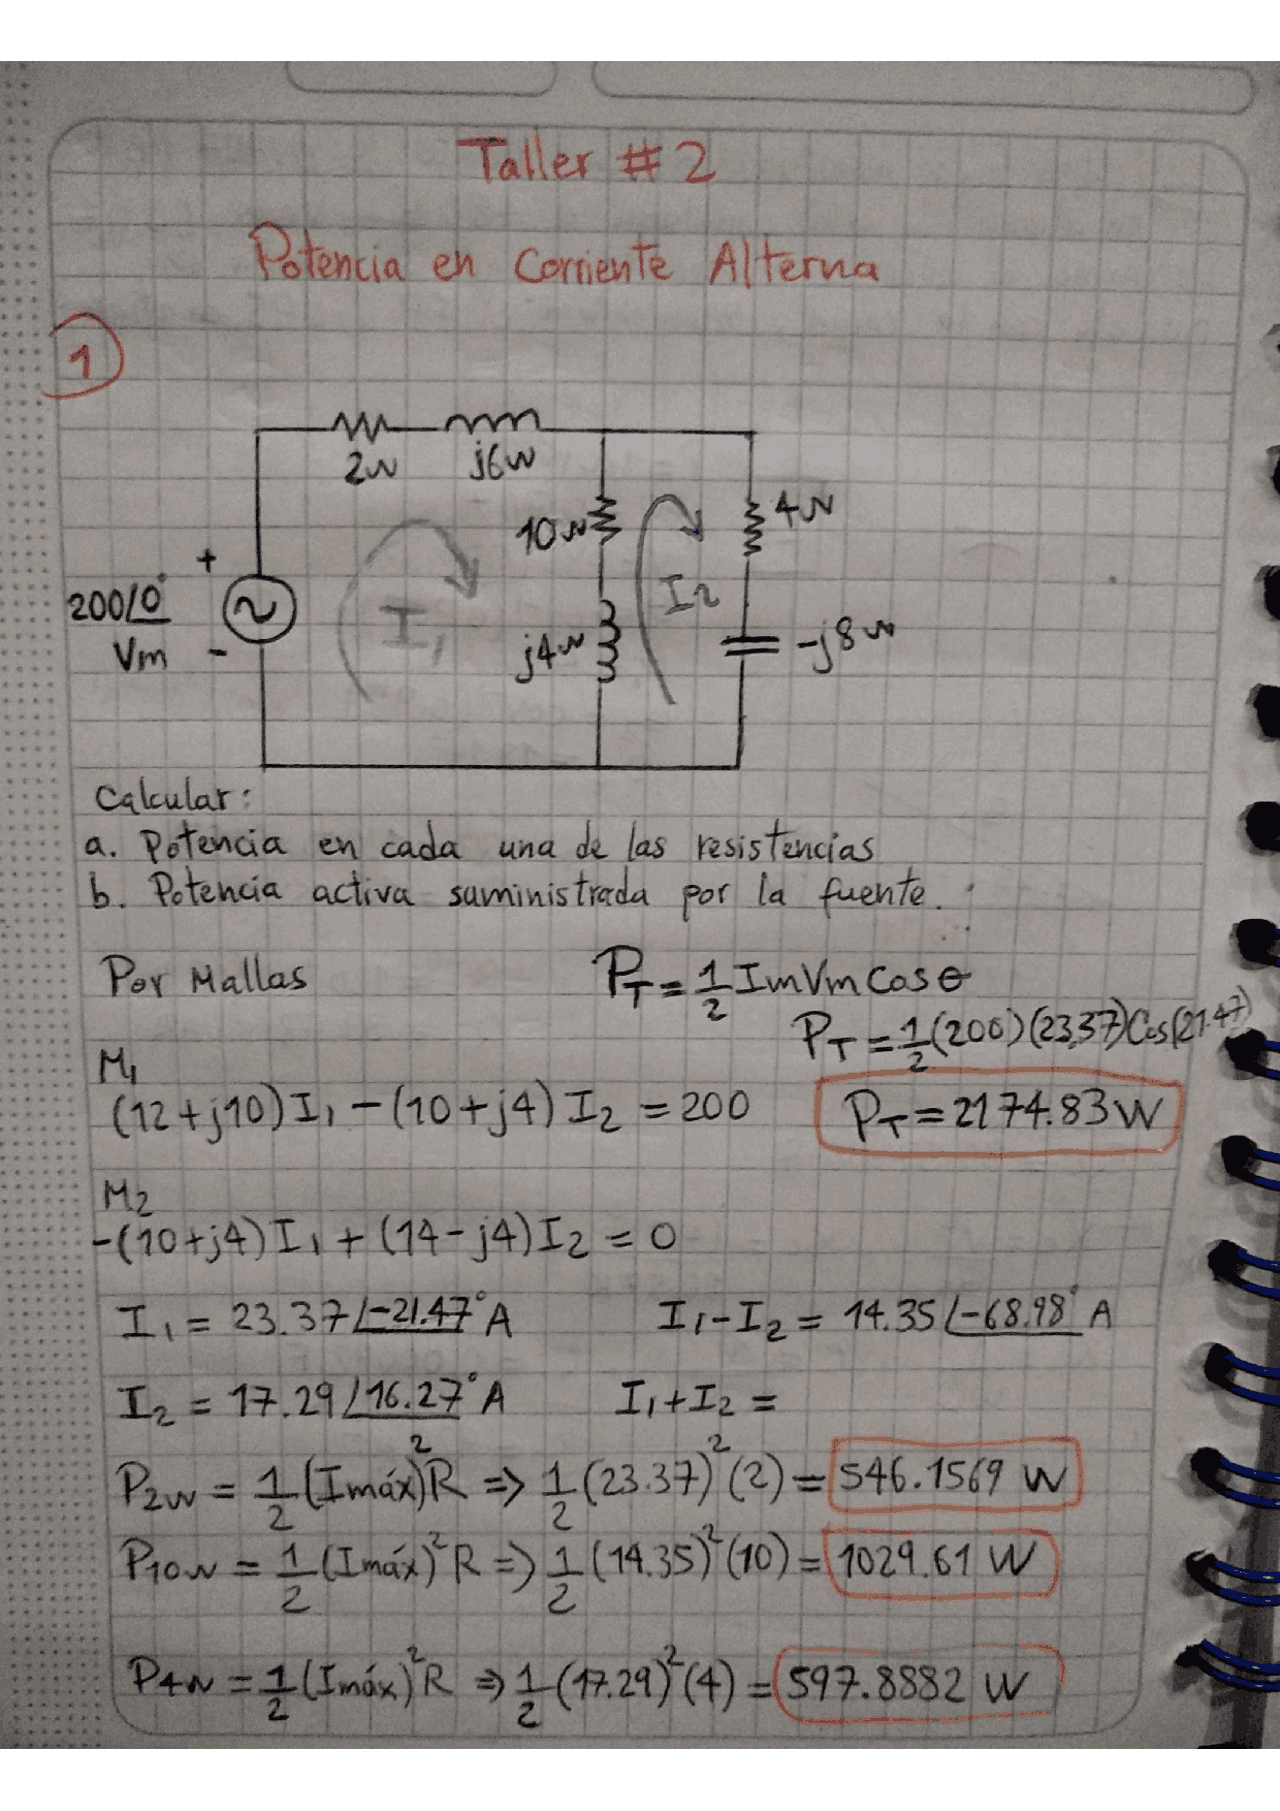 Taller #2
Potencia en Corriente Alterna
1
2Ω
j6Ω
10Ω
4Ω
+
200∠0°
Vm
-
I₁
I₂
j4Ω
-j8Ω
Calcular:
a. Potencia en cada una de las resistencias
b. Potencia activa suministrada por la fuente.
Por Mallas
P_T = 1/2 Im Vm Cos θ
P_T = 1/2 (200)(23.37) Cos(21.47)
P_T = 2174.83 W
M₁
(12+j10) I₁ - (10+j4) I₂ = 200
M₂
-(10+j4) I₁ + (14-j4) I₂ = 0
I₁ = 23.37 ∠-21.47° A
I₁-I₂ = 14.35 ∠-68.98° A
I₂ = 17.29 ∠16.27° A
I₁+I₂ =
P2Ω = 1/2 (Imáx)² R => 1/2 (23.37)² (2) = 546.1569 W
P10Ω = 1/2 (Imáx)² R => 1/2 (14.35)² (10) = 1029.61 W
P4Ω = 1/2 (Imáx)² R => 1/2 (17.29)² (4) = 597.8882 W